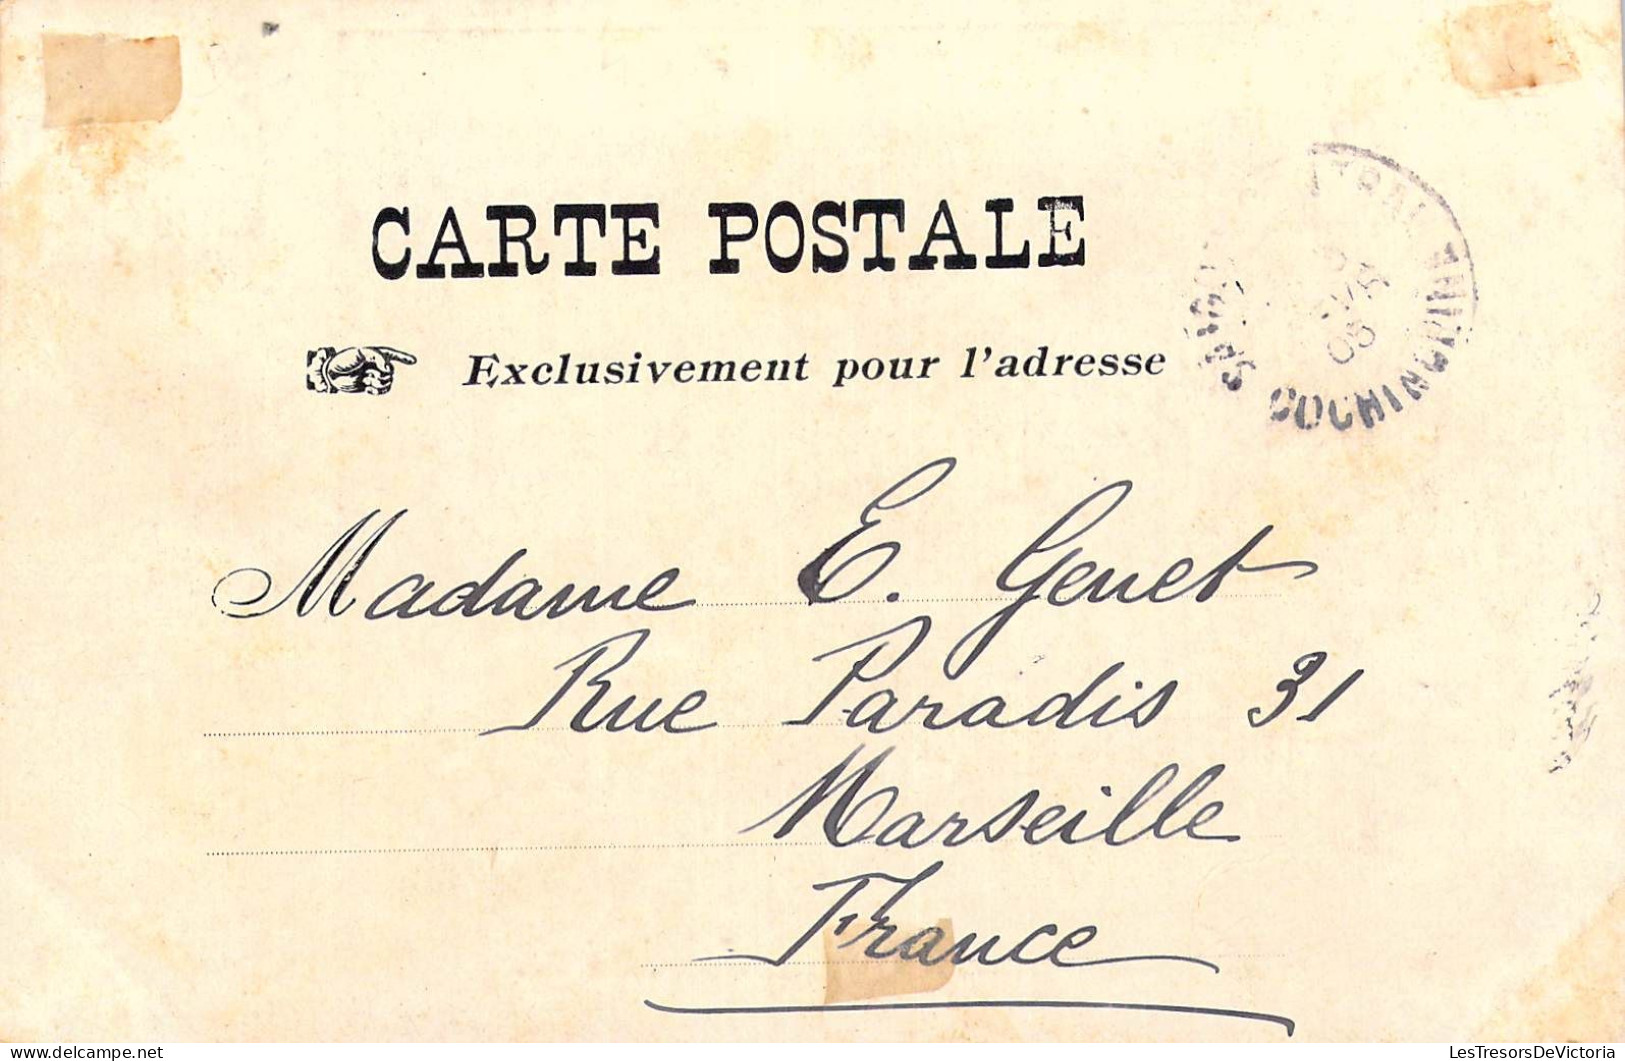 CARTE POSTALE
Exclusivement pour l'adresse
COCHINCHINE
05
Madame E. Genet
Rue Paradis 31
Marseille
France
LesTresorsDeVictoria